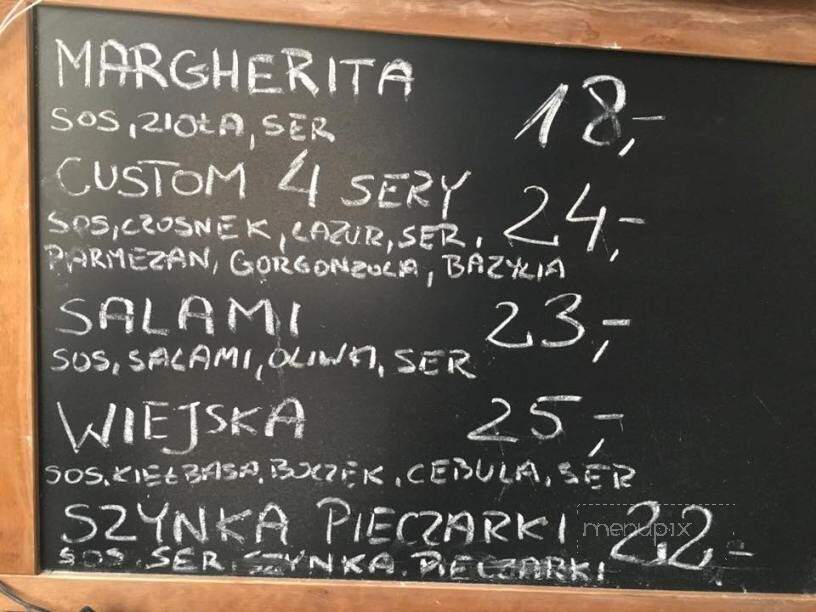 MARGHERITA 18,-
SOS, ZIOŁA, SER
CUSTOM 4 SERY 24,-
SOS, CZOSNEK, LAZUR, SER,
PARMEZAN, GORGONZOLA, BAZYLIA
SALAMI 23,-
SOS, SALAMI, OLIWA, SER
WIEJSKA 25,-
SOS, KIEŁBASA, BOCZEK, CEBULA, SER
SZYNKA PIECZARKI 22,-
SOS, SER, SZYNKA, PIECZARKI
menupix